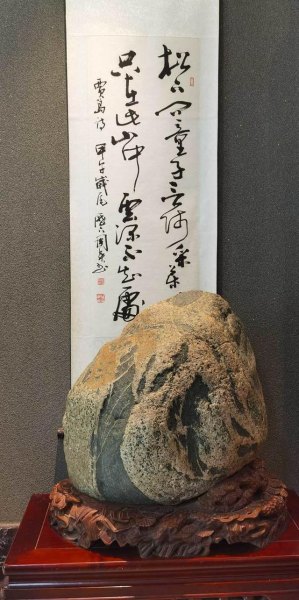 松下问童子言师采藥
只在此山中雲深不知處
賈島诗 甲午歲尾